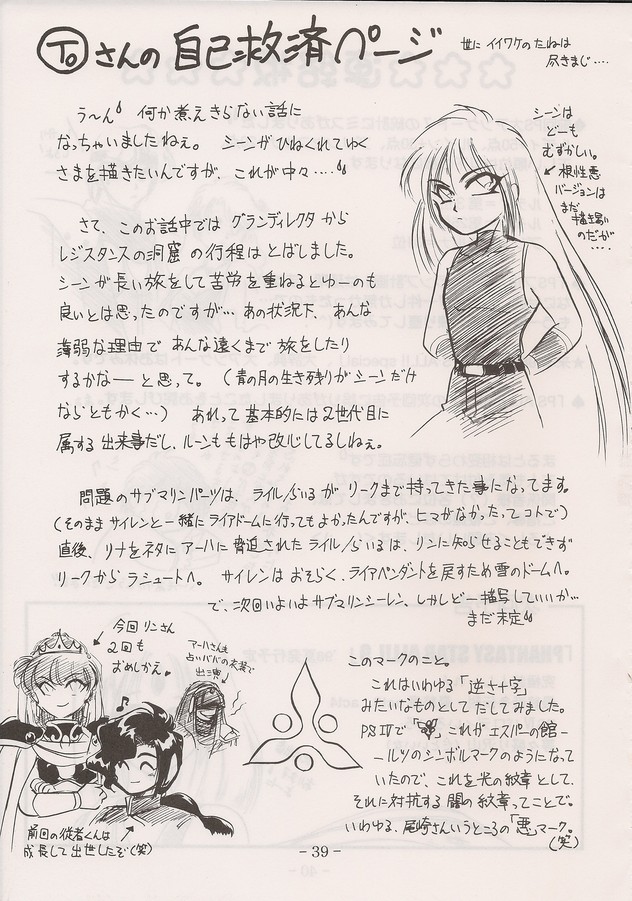 Toさんの 自己救済ページ
世に イイワケのたねは
尽きまじ‥‥
う〜ん 何か煮えきらない話に
なっちゃいましたねぇ。 シーンがひねくれてゆく
さまを描きたいんですが、これが中々‥‥
シーンは
どーも
むずかしい。
↙ 根性悪
バージョンは
まだ
描き易い
のだが
‥‥
さて、このお話中では グランディレクタ から
レジスタンスの洞窟 の行程は とばしました。
シーンが長い旅をして苦労を重ねるとゆーのも
良いとは思ったのですが… あの状況下、あんな
薄弱な理由で あんな遠くまで 旅をしたり
するかな―と思って。（青の月の生き残りがシーンだけ
ならともかく…） あれって基本的には2世代目に
属する出来事だし、ルーンももはや改心してるしねぇ。
問題のサブマリンパーツは、ライル/らいる が リークまで持ってきた事になってます。
（そのまま サイレンと一緒にライアドームに行ってもよかったんですが、ヒマがなかったってコトで）
直後、リナをネタに アーハに脅迫された ライル/らいる は、リンに知らせることもできず
リークから ラシュートへ。 サイレンは おそらく、ライアペンダントを戻すため雪のドームへ。
で、次回いよいよ サブマリンシーレン、しかしどー描写していいか…
まだ未定
今回リンさん
2回も
おめしかえ♥
アーハさんも
占いババの衣装で
出演
♪
前回の従者くんは
成長して出世したぞ(笑)
このマークのこと。
これはいわゆる「逆さ十字」
みたいなものとして だしてみました。
PSⅣで「 」これがエスパーの館―
―ルツのシンボルマークのようになって
いたので、これを光の紋章として、
それに対抗する 闇の紋章ってことで。
いわゆる、尾崎さんいうところの「悪」マーク。
(笑)
- 39 -